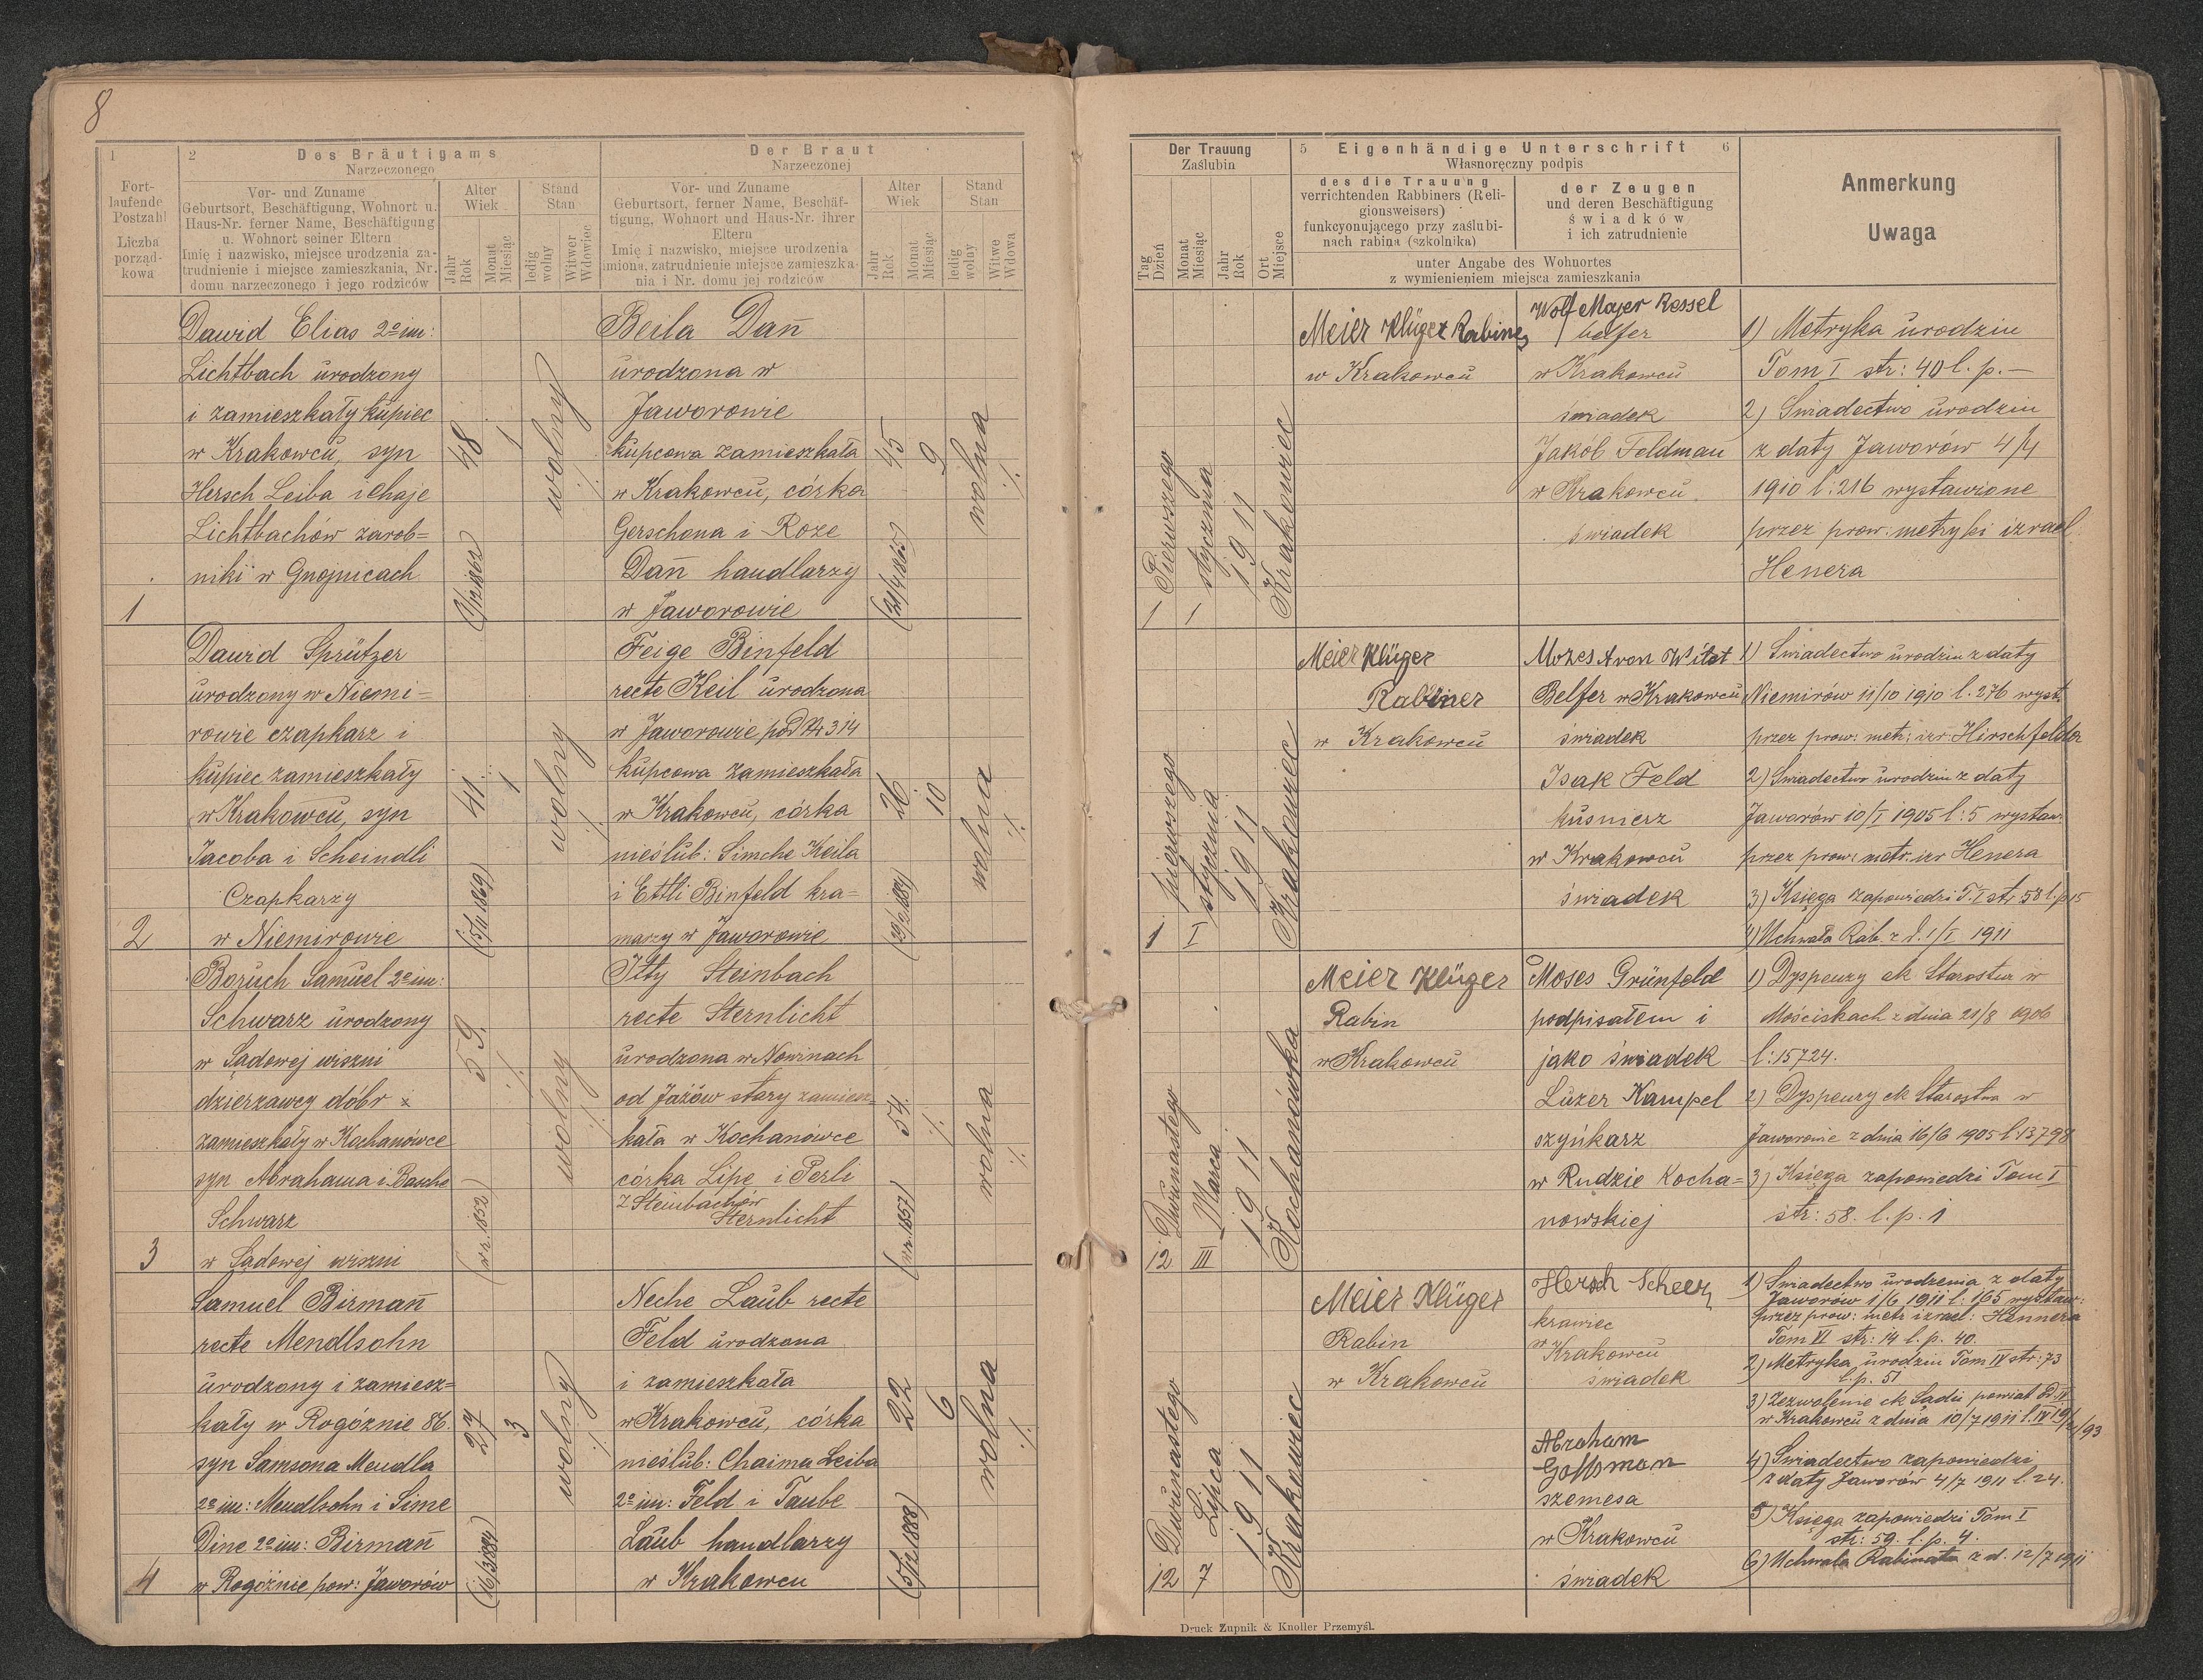 8
1
2 Des Bräutigams
Narzeczonego
Der Braut
Narzeczonej
Fort-
laufende
Postzahl
Liczba
porząd-
kowa
Vor- und Zuname
Geburtsort, Beschäftigung, Wohnort u.
Haus-Nr. ferner Name, Beschäftigung
u. Wohnort seiner Eltern
Imię i nazwisko, miejsce urodzenia za-
trudnienie i miejsce zamieszkania, Nr.
domu narzeczonego i jego rodziców
Alter
Wiek
Jahr
Rok
Monat
Miesiąc
Stand
Stan
ledig
wolny
Witwer
Wdowiec
Vor- und Zuname
Geburtsort, ferner Name, Beschäf-
tigung, Wohnort und Haus-Nr. ihrer
Eltern
Imię i nazwisko, miejsce urodzenia
imiona, zatrudnienie miejsce zamieszka-
nia i Nr. domu jej rodziców
Alter
Wiek
Jahr
Rok
Monat
Miesiąc
Stand
Stan
ledig
wolny
Witwe
Wdowa
Der Trauung
Zaślubin
Tag
Dzień
Monat
Miesiąc
Jahr
Rok
Ort
Miejsce
5 Eigenhändige Unterschrift 6
Własnoręczny podpis
des die Trauung
verrichtenden Rabbiners (Reli-
gionsweisers)
funkcyonującego przy zaślubi-
nach rabina (szkolnika)
der Zeugen
und deren Beschäftigung
świadków
i ich zatrudnienie
unter Angabe des Wohnortes
z wymienieniem miejsca zamieszkania
Anmerkung
Uwaga
1
Dawid Elias 2º im:
Lichtbach urodzony
i zamieszkały kupiec
w Krakowcu, syn
Hersch Leiba i Chaje
Lichtbachów zarob=
niki w Gnojnicach
48
1
wolny
Beila Dan̄
urodzona w
Jaworowie
kupcowa zamieszkała
w Krakowcu, córka
Gerschona i Roze
Dan̄ handlarzy
w Jaworowie
45
9
(21/4 1865)
wolna
1
Pierwszego
1
stycznia
1911
Krakowiec
Meier Klüger Rabiner
w Krakowcu
Wolf Majer Kessel
belfer
w Krakowcu
świadek
Jakób Feldman
w Krakowcu
świadek
1) Metryka urodzin
Tom I str: 40 l. p. —
2) Swiadectwo urodzin
z daty Jaworów 4/4
1910 l: 216 wystawione
przez prow. metryki izrael.
Henera
2
Dawid Sprützer
urodzony w Niemi=
rowie czapkarz i
kupiec zamieszkały
w Krakowcu, syn
Jacoba i Scheindli
Czapkarzy
w Niemirowie
41
1
(5/11 1869)
wolny
Feige Binfeld
recte Keil urodzona
w Jaworowie pod Nr 314
kupcowa zamieszkała
w Krakowcu, córka
nieślub: Simche Keila
i Ettli Binfeld kra=
marzy w Jaworowie
26
10
wolna
1
pierwszego
I
stycznia
1911
Krakowiec
Meier Klüger
Rabiner
w Krakowcu
Mozes Aron Witat
Belfer w Krakowcu
świadek
Isak Feld
kusnierz
w Krakowcu
świadek
1) Swiadectwo urodzin z daty
Niemirów 11/10 1910 l. 276 wyst.
przez prow: metr: izr: Hirschfelder
2) Swiadectwo urodzin z daty
Jaworów 10/I 1905 l: 5 wystaw.
przez prow: metr: izr Henera
3) Księga zapowiedzi T. I str 58 l. p 15
4) Uchwała Rab. z d. 1/I 1911
3
Boruch Samuel 2º im:
Schwarz urodzony
w Sądowej wiszni
dzierzawcy dóbr
zamieszkały w Kochanówce
syn Abrahama i Basche
Schwarz
w Sądowej wiszni
59.
(ur. 1852)
wolny
Itty Steinbach
recte Sternlicht
urodzona w Nowinach
od Jażów stary zamiesz=
kała w Kochanówce
córka Lipe i Perli
z Steinbachów
Sternlicht
54.
(ur. 1857)
wolna
12
Dwunastego
III
Marca
1911
Kochanówka
Meier Klüger
Rabin
w Krakowcu
Moses Grünfeld
podpisałem i
jako świadek
Luzer Kampel
szynkarz
w Rudzie Kocha=
nowskiej
1) Dyspenzy ck Starostwa w
Mościskach z dnia 21/8 1906
l: 15724.
2) Dyspenzy ck Starostwa w
Jaworowie z dnia 16/6 1905 l. 13798
3) Księga zapowiedzi Tom I
str: 58. l. p. 1
4
Samuel Birman̄
recte Mendlsohn
urodzony i zamiesz=
kały w Rogóznie 86.
syn Samsona Mendla
2º im: Mendlsohn i Sime
Dine 2º im: Birman̄
w Rogóznie pow: Jaworów
27
3
wolny
Neche Laub recte
Feld urodzona
i zamieszkała
w Krakowcu, córka
nieślub: Chaima Leiba
2º im: Feld i Taube
Laub handlarzy
w Krakowcu
22
6
wolna
12
Dwunastego
7
Lipca
1911
Krakowiec
Meier Klüger
Rabin
w Krakowcu
Hersch Scheer
krawiec
w Krakowcu
świadek
Abraham
szemesa
w Krakowcu
świadek
1) Swiadectwo urodzenia z daty
Jaworów 1/6 1911 l: 165 wystaw:
przez prow: metr izrael: Hennera
Tom VI str: 14 l. p. 40.
2) Metryka urodzin Tom IV str: 73
l. p. 51
3) Zezwolenie ck Sadu powiat
w Krakowcu z dnia 10/7 1911
4) Swiadectwo zapowiedzi
z daty Jaworów 4/7 1911 l. 24.
5) Księga zapowiedzi Tom I
str: 59. l. p. 4.
6) Uchwała Rabinata z d. 12/7 1911
Druck Zupnik & Knoller Przemyśl.